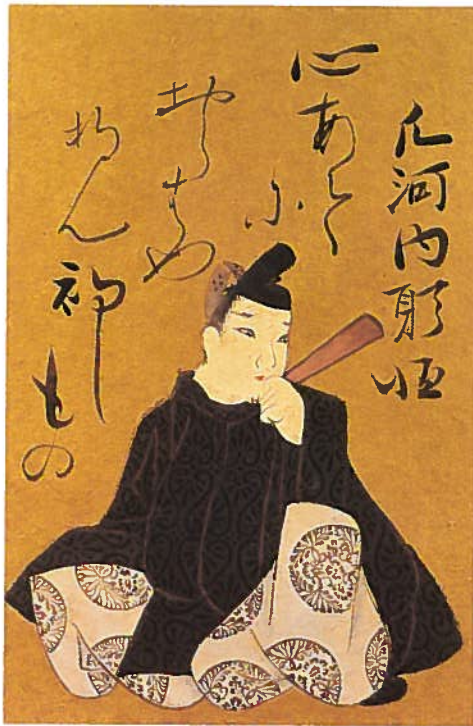 凡河内躬恒
心あてに
おらはや
折ん初し
もの